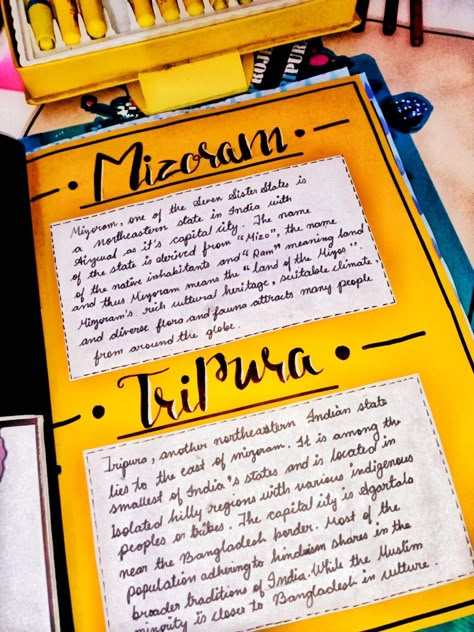 Mizoram
Mizoram, one of the Seven Sister States is
a northeastern state in India with
Aizwal as it's capital city. The name
of the state is derivd from "Mizo", the name
of the native inhabitants and "Ram" meaning land
and thus Mizoram means the "land of the Mizos".
Mizoram's rich cultural heritage, suitable climate
and diverse flora and fauna attracts many people
from around the globe.
Tripura
Tripura, another northeastern Indian state
lies to the east of mizoram. It is among the
smallest of India's states and is located in
isolated hilly regions with various indigenous
peoples or tribes. The capital city is Agartala
near the Bangladesh border. Most of the
population adhering to hinduism shares in the
broader traditions of India. While the Muslim
minority is closer to Bangladesh in culture.